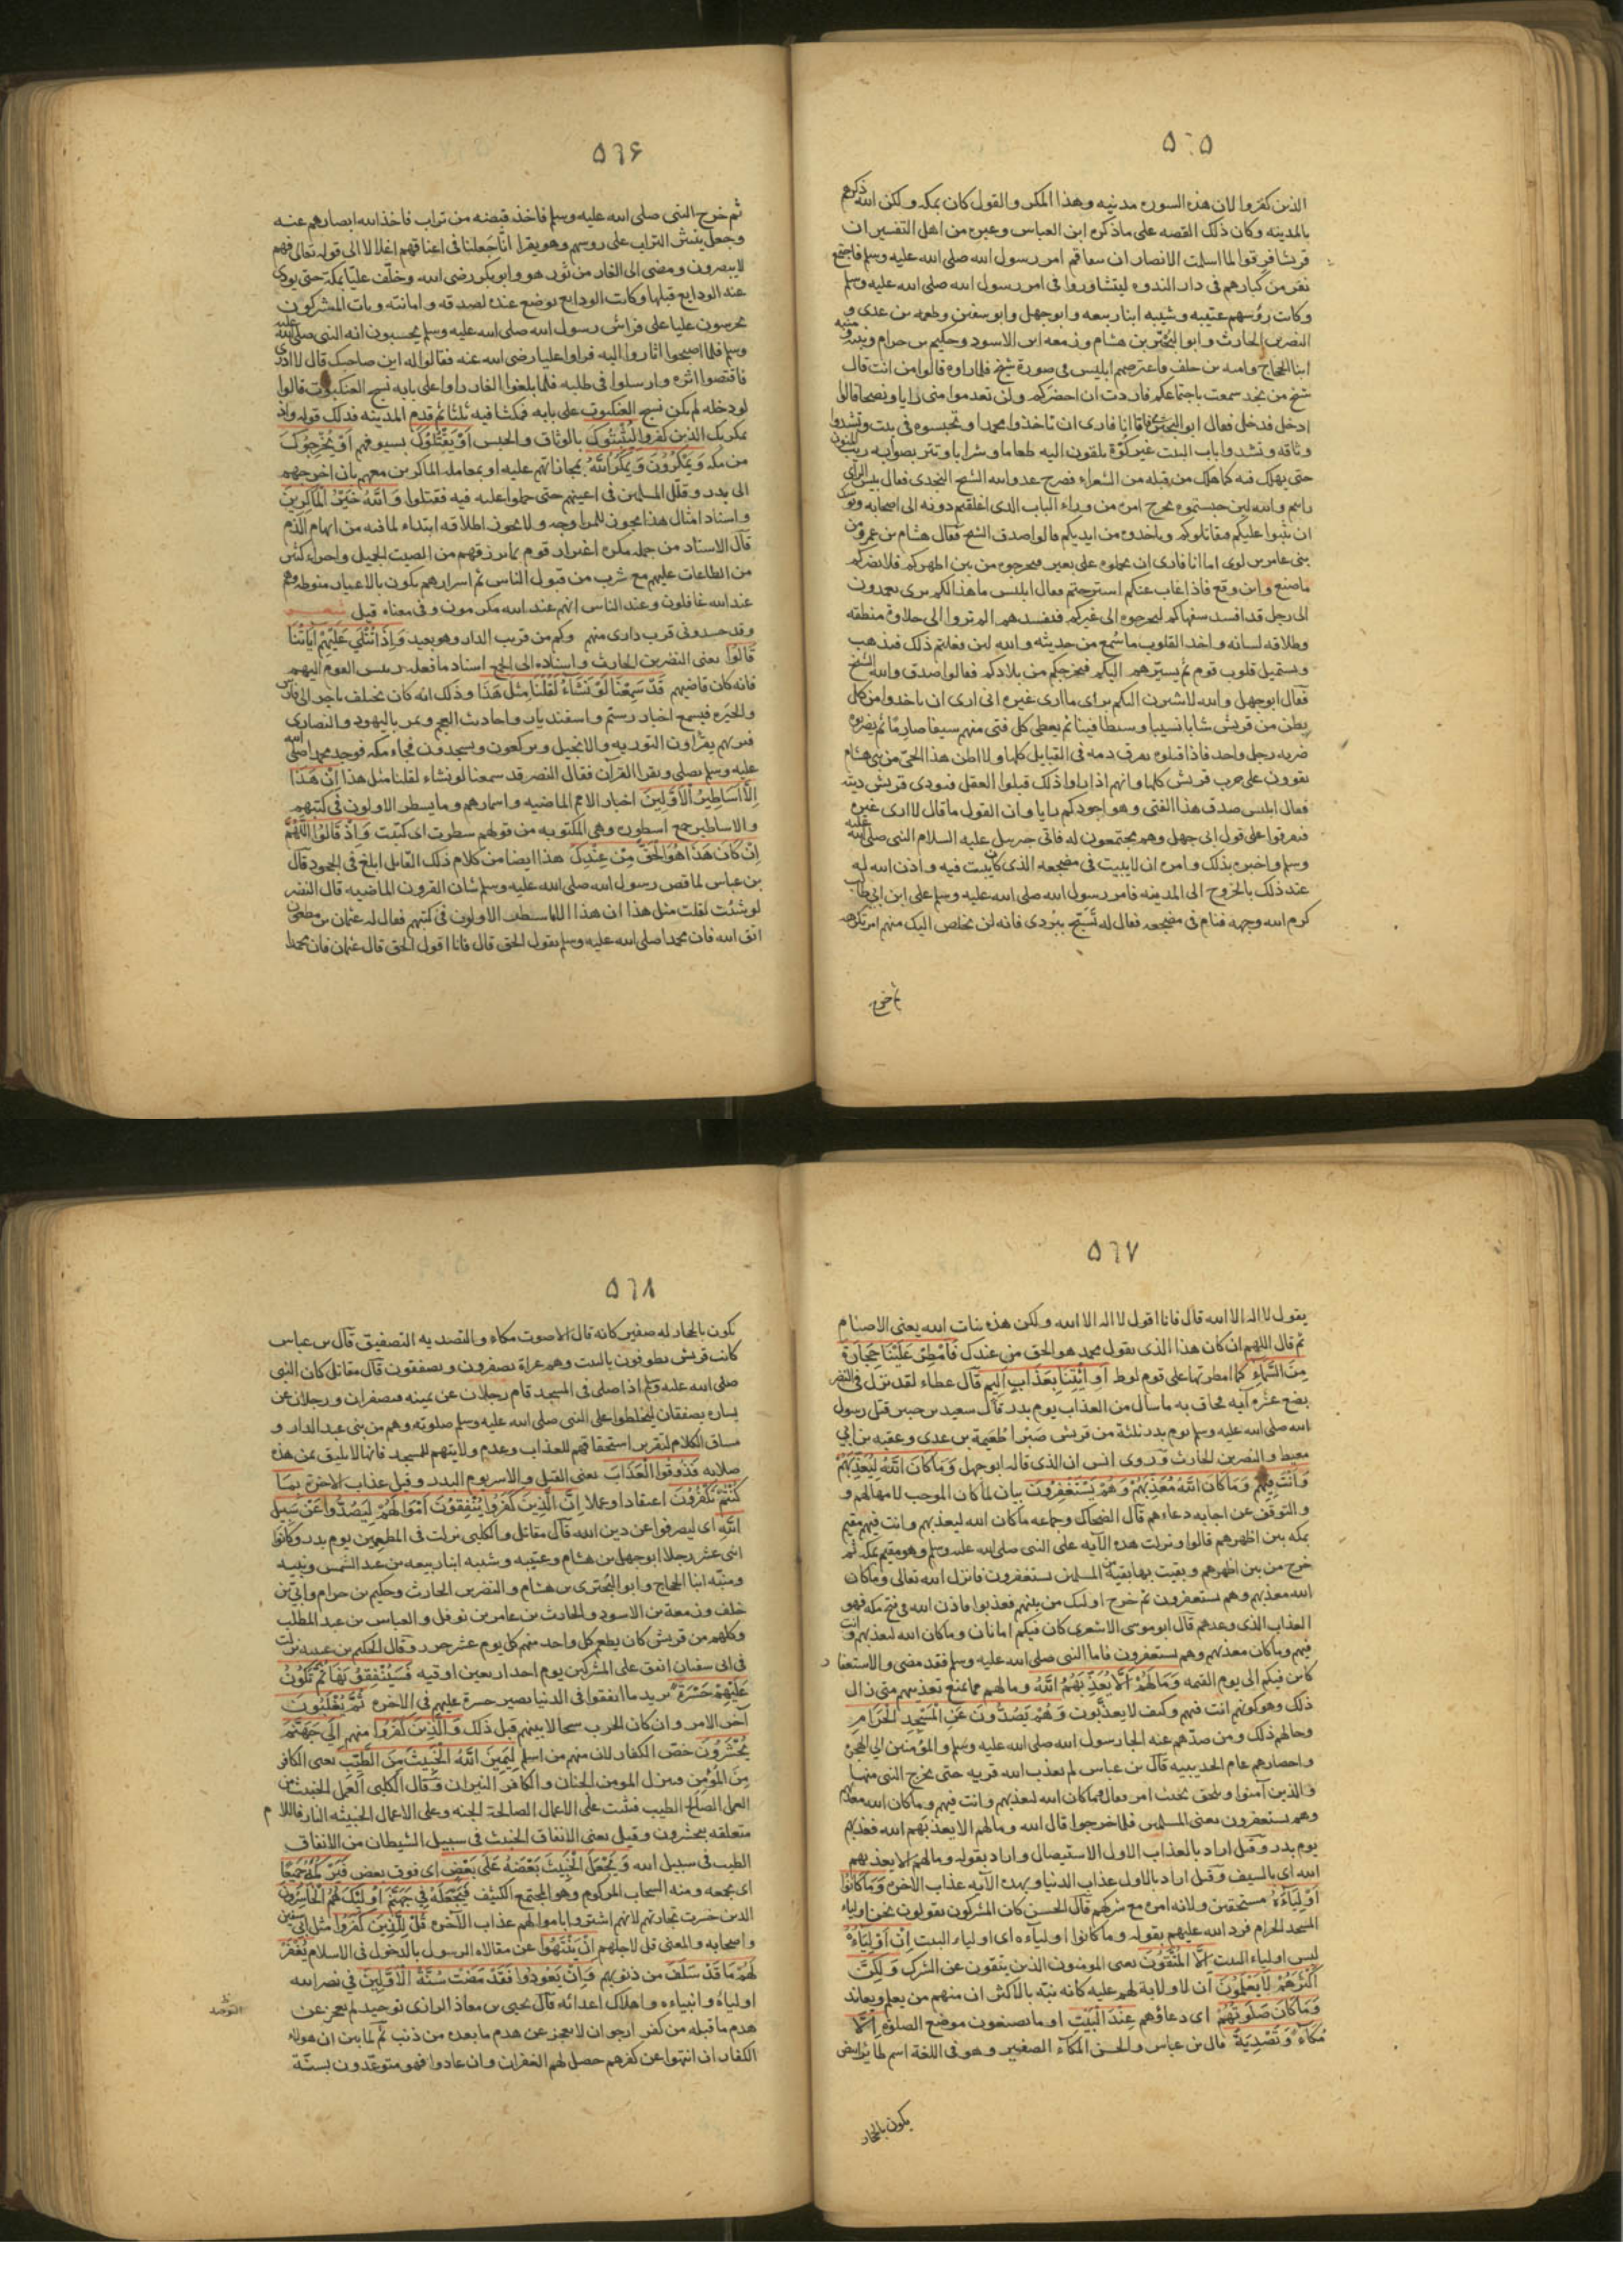 ٥٦٥
الذين كفروا لان هذه السوره مدنيه وهذا المكر والقول كان بمكه ولكن الله ذكرهم
بالمدينه وكان ذلك القصه على ماذكره ابن العباس وغيره من اهل التفسير ان
قريشا فرقوا لما اسلمت الانصار ان يتفاقم امر رسول الله صلى الله عليه وسلم فاجتمع
نفر من كبارهم فى دار الندوه ليتشاوروا فى امر رسول الله صلى الله عليه وسلم
وكانت رؤسهم عتيبه وشيبه ابنا ربيعه وابوجهل وابو سفين وطعمه بن عدى و
النضر بن الحارث وابو البخترى بن هشام وزمعه ابن الاسود وحكيم بن حرام ونبيه ومنبه
ابنا الحجاج واميه بن خلف فاعترضهم ابليس فى صورة شيخ فلما راوه قالوا من انت قال
شيخ من نجد سمعت باجتماعكم فاردت ان احضركم ولن تعدموا منى رايا ونصحا قالوا
ادخل فدخل فقال ابو البخترى اما انا فارى ان تاخذوا محمدا وتحبسوه فى بيت وتشدوا
وثاقه وتشدوا باب البيت غير كوّة تلقون اليه طعاما وشرابا وتتربصوا به ريب المنون
حتى يهلك فيه كما هلك من قبله من الشعراء فصرخ عدوالله الشيخ النجدى فقال بئس الراى
رايتم والله لين حبستموه يخرج امره من وراء الباب الذى اغلقتم دونه الى اصحابه
ان يثبوا عليكم فيقاتلوكم وياخذوه من ايديكم قالوا صدق الشيخ فقال هشام بن عمرو من
بنى عامر بن لوى اما انا فارى ان تحملوه على بعير فتخرجوه من بين اظهركم فلا يضركم
ماصنع واين وقع فاذا غاب عنكم استرحتم فقال ابليس ما هذا لكم براى تعمدون
الى رجل قد افسد سفهاكم فتخرجوه الى غيركم فيفسدهم الم تروا الى حلاوة منطقه
وطلاقه لسانه واخذ القلوب ما تسمع من حديثه والله لين فعلتم ذلك فيذهب
ويستميل قلوب قوم ثم يسير بهم اليكم فيخرجكم من بلادكم فقالوا صدق والله الشيخ
فقال ابوجهل والله لاشيرن اليكم براى ما ارى غيره انى ارى ان تاخذوا من كل
بطن من قريش شابا نسيبا وسيطا فينا ثم يعطى كل فتى منهم سيفا صارما ثم يضربوه
ضربه رجل واحد فاذا قتلوه تفرق دمه فى القبايل كلها ولا اظن هذا الحى من بنى هشام
يقوون على حرب قريش كلها وانهم اذا راوا ذلك قبلوا العقل فتودى قريش ديته
فقال ابليس صدق هذا الفتى وهو اجودكم رايا وان القول ما قال لا ارى غيره
فتفرقوا على قول ابى جهل وهم مجتمعون له فاتى جبريل عليه السلام النبى صلى الله عليه
وسلم واخبره بذلك وامره ان لا يبيت فى مضجعه الذى كان يبيت فيه واذن الله له
عند ذلك بالخروج الى المدينه فامر رسول الله صلى الله عليه وسلم على ابن ابى طالب
كرم الله وجهه فنام فى مضجعه فقال له تسبّح ببردى فانه لن يخلص اليك منهم امر تكرهه
ثم خرج
٥٦٦
ثم خرج النبى صلى الله عليه وسلم فاخذ قبضه من تراب فاخذ الله ابصارهم عنه
وجعل ينثر التراب على روسهم وهو يقرا انّا جعلنا فى اعناقهم اغلالا الى قوله تعالى فهم
لا يبصرون ومضى الى الغار من ثور هو وابوبكر رضى الله وخلّف عليّا بمكة حتى يودى
عنه الودايع قبلها وكانت الودايع توضع عنده لصدقه وامانته وبات المشركون
يحرسون عليا على فراش رسول الله صلى الله عليه وسلم يحسبون انه النبى صلى الله عليه
وسلم فلما اصبحوا اثاروا اليه فراوا عليا رضى الله عنه فقالوا له اين صاحبك قال لا ادرى
فاقتصوا اثره وارسلوا فى طلبه فلما بلغوا الغار راوا على بابه نسج العنكبوت قالوا
لو دخله لم يكن نسج العنكبوت على بابه فمكث فيه ثلثا ثم قدم المدينه فذلك قوله واذ
يمكر بك الذين كفروا ليُثْبِتُوكَ بالوثاق والحبس اَوْ يَقْتُلُوكَ بسيوفهم اَوْ يُخْرِجُوكَ
من مكه وَيَمْكُرُونَ وَيَمْكُرُ اللّٰهُ بمجازاتهم عليه او بمعامله الماكرين معهم بان اخرجهم
الى بدر وقلّل المسلمين فى اعينهم حتى حملوا عليه فيه فقتلوا وَاللّٰهُ خَيْرُ الْمَاكِرِينَ
واسناد امثال هذا يجوز للمزاوجه ولا يجوز اطلاقه ابتداء لما فيه من ايهام الذم
قال الاستاد من جمله مكره اغترار قوم بما يرزقهم من الصيت الجميل واجراء كثير
من الطاعات عليهم مع شرب من قبول الناس ثم اسرارهم يكون بالاغيار منوطه وهم
عند الله غافلون وعند الناس انهم عند الله مكرمون وفى معناه قيل شعر
وقد حسدونى قرب دارى منهم وكم من قريب الدار وهو بعيد وَاِذَا تُتْلَى عَلَيْهِمْ اٰيَاتُنَا
قَالُوا يعنى النضر بن الحارث واسناده الى الجمع اسناد ما فعله رييس القوم اليهم
فانه كان قاضيهم قَدْ سَمِعْنَا لَوْ نَشَاءُ لَقُلْنَا مِثْلَ هَذَا وذلك انه كان يختلف تاجر الى فارس
والحيره فيسمع اخبار رستم واسفنديار واحاديث العجم ويمر باليهود والنصارى
فيراهم يقرأون التوريه والانجيل ويركعون ويسجدون فجاء مكه فوجد محمدا صلى الله
عليه وسلم يصلى ويقرا القرآن فقال النضر قد سمعنا لو نشاء لقلنا مثل هذا اِنْ هَذَا
اِلَّا اَسَاطِيرُ الْاَوَّلِينَ اخبار الامم الماضيه واسمارهم وما يسطر الاولون فى كتبهم
والاساطير جمع اسطوره وهى المكتوبه من قولهم سطرت اى كتبت وَاِذْ قَالُوا اللّٰهُمَّ
اِنْ كَانَ هَذَا هُوَ الْحَقَّ مِنْ عِنْدِكَ هذا ايضا من كلام ذلك القايل ابلغ فى الجحود قال
بن عباس لما قص رسول الله صلى الله عليه وسلم شان القرون الماضيه قال النضر
لو شئت لقلت مثل هذا ان هذا الا ما سطر الاولون فى كتبهم فقال له عثمان بن مظعون
اتق الله فان محمدا صلى الله عليه وسلم يقول الحق قال فانا اقول الحق قال عثمان فان محمدا
٥٦٧
يقول لا اله الا الله قال فانا اقول لا اله الا الله ولكن هذه بنات الله يعنى الاصنام
ثم قال اللهم ان كان هذا الذى يقول محمد هو الحق من عندك فَاَمْطِرْ عَلَيْنَا حِجَارَةً
مِنَ السَّمَاءِ كما امطرتها على قوم لوط اَوِ ائْتِنَا بِعَذَابٍ اَلِيمٍ قال عطاء لقد نزل فى النضر
بضع عشره آيه فحاق به ما سال من العذاب يوم بدر قال سعيد بن جبير قتل رسول
الله صلى الله عليه وسلم يوم بدر ثلثة من قريش صبرا طعيمة بن عدى وعقبه بن ابى
معيط والنضر بن الحارث وروى انس ان الذى قاله ابوجهل وَمَا كَانَ اللّٰهُ لِيُعَذِّبَهُمْ
وَاَنْتَ فِيهِمْ وَمَا كَانَ اللّٰهُ مُعَذِّبَهُمْ وَهُمْ يَسْتَغْفِرُونَ بيان لما كان الموجب لامهالهم و
والتوقف عن اجابه دعاءهم قال الضحاك وجماعه ما كان الله ليعذبهم وانت فيهم مقيم
بمكه بين اظهرهم قالوا ونزلت هذه الآيه على النبى صلى الله عليه وسلم وهو مقيم بمكه ثم
خرج من بين اظهرهم وبقيت بها بقية من المسلمين يستغفرون فانزل الله تعالى وما كان
الله معذبهم وهم يستغفرون ثم خرج اولئك من بينهم فعذبوا فاذن الله فى فتح مكه فهو
العذاب الذى وعدهم قال ابو موسى الاشعرى كان فيكم امانان وما كان الله ليعذبهم وانت
فيهم وما كان معذبهم وهم يستغفرون فاما النبى صلى الله عليه وسلم فقد مضى والاستغفار
كاين فيكم الى يوم القيمه وَمَا لَهُمْ اَلَّا يُعَذِّبَهُمُ اللّٰهُ وما لهم مما يمنع تعذيبهم متى زال
ذلك وهو كونهم انت فيهم وكيف لا يعذّبون وَهُمْ يَصُدُّونَ عَنِ الْمَسْجِدِ الْحَرَامِ
وحالهم ذلك ومن صدّهم عنه الجاء رسول الله صلى الله عليه وسلم والمؤمنين الى الهجرة
واحصارهم عام الحديبيه قال بن عباس لم يعذب الله قريه حتى يخرج النبى منها
والذين آمنوا ويلحق بحيث امر وقال وما كان الله ليعذبهم وانت فيهم وما كان الله معذبهم
وهم يستغفرون يعنى المسلمين فلما خرجوا قال الله وما لهم الا يعذبهم الله فعذبهم
يوم بدر وقيل اراد بالعذاب الاول الاستيصال واراد بقوله وما لهم الا يعذبهم
الله اى بالسيف وقيل اراد بالاول عذاب الدنيا وبهذه الآيه عذاب الاخره وَمَا كَانُوا
اَوْلِيَاءَهُ مستحقين ولايه امره مع شركهم قال الحسن كان المشركون يقولون نحن اولياء
المسجد الحرام فرد الله عليهم بقوله وما كانوا اولياءه اى اولياء البيت اِنْ اَوْلِيَاءُهُ
ليس اولياء البيت اِلَّا الْمُتَّقُونَ يعنى المومنون الذين يتقون عن الشرك وَلَكِنَّ
اَكْثَرَهُمْ لَا يَعْلَمُونَ ان لا ولاية لهم عليه كانه نبّه بالاكثر ان منهم من يعلم ويعاند
وَمَا كَانَ صَلَوتُهُمْ اى دعاؤهم عِنْدَ الْبَيْتِ او ما يصنعون موضع الصلوة اِلَّا
مُكَاءً وَتَصْدِيَةً قال بن عباس والحسن المكاء الصفير وهو فى اللغة اسم طاير ابيض
يكون بالحجاز
٥٦٨
يكون بالحجاز له صفير كانه قال الا صوت مكاء والتصديه التصفيق قال بن عباس
كانت قريش يطوفون بالبيت وهم عراة يصفرون ويصفقون قال مقاتل كان النبى
صلى الله عليه وسلم اذا صلى فى المسجد قام رجلان عن يمينه فيصفران ورجلان عن
يساره يصفقان ليخلطوا على النبى صلى الله عليه وسلم صلوته وهم من بنى عبد الدار و
مساق الكلام لتقرير استحقاقهم للعذاب وعدم ولايتهم للمسجد فانها لا يليق بمن هذه
صلاته فَذُوقُوا الْعَذَابَ يعنى القتل والاسر يوم البدر وقيل عذاب الاخرة بِمَا
كُنْتُمْ تَكْفُرُونَ اعتقادا وعملا اِنَّ الَّذِينَ كَفَرُوا يُنْفِقُونَ اَمْوَالَهُمْ لِيَصُدُّوا عَنْ سَبِيلِ
اللّٰهِ اى ليصرفوا عن دين الله قال مقاتل والكلبى نزلت فى المطعمين يوم بدر وكانوا
اثنى عشر رجلا ابوجهل بن هشام وعتيبه وشيبه ابنا ربيعه من عبد الشمس ونبيه
ومنبّه ابنا الحجاج وابو البخترى بن هشام والنضر بن الحارث وحكيم بن حرام وابىّ بن
خلف وزمعة بن الاسود والحارث بن عامر بن نوفل والعباس بن عبد المطلب
وكلهم من قريش كان يطعم كل واحد منهم كل يوم عشر جزر وقال الحكيم بن عيينه نزلت
فى ابى سفيان انفق على المشركين يوم احد اربعين اوقيه فَسَيُنْفِقُونَهَا ثُمَّ تَكُونُ
عَلَيْهِمْ حَسْرَةً يريد ما انفقوا فى الدنيا يصير حسرة عليهم فى الاخره ثُمَّ يُغْلَبُونَ
آخر الامر وان كان الحرب سجالا بينهم قبل ذلك وَالَّذِينَ كَفَرُوا منهم اِلَى جَهَنَّمَ
يُحْشَرُونَ خصّ الكفار لان منهم من اسلم لِيَمِيزَ اللّٰهُ الْخَبِيثَ مِنَ الطَّيِّبِ يعنى الكافر
مِنَ المُؤْمِنِ وينزل المومن الجنان والكافر النيران وقال الكلبى العمل الخبيث من
العمل الصالح الطيب فيثيب على الاعمال الصالحة الجنه وعلى الاعمال الخبيثه النار فاللام
متعلقه بيحشرون وقيل يعنى الانفاق الخبيث فى سبيل الشيطان من الانفاق
الطيب فى سبيل الله وَيَجْعَلَ الْخَبِيثَ بَعْضَهُ عَلَى بَعْضٍ اى فوق بعض فَيَرْكُمَهُ جَمِيعًا
اى يجمعه ومنه السحاب المركوم وهو المجتمع الكثيف فَيَجْعَلَهُ فِي جَهَنَّمَ اُولٰئِكَ هُمُ الْخَاسِرُونَ
الذين خسرت تجارتهم لانهم اشتروا باموالهم عذاب الآخره قُلْ لِلَّذِينَ كَفَرُوا مثل ابى سفين
واصحابه والمعنى قل لاجلهم اِنْ يَنْتَهُوا عن مقالاة الرسول بالدخول فى الاسلام يُغْفَرْ
لَهُمْ مَا قَدْ سَلَفَ من ذنوبهم وَاِنْ يَعُودُوا فَقَدْ مَضَتْ سُنَّةُ الْاَوَّلِينَ فى نصر الله
اولياءه وانبياءه واهلاك اعدائه قال يحيى بن معاذ الرازى توحيد لم يعجز عن
هدم ما قبله من كفر ارجو ان لا يعجز عن هدم ما بعده من ذنب ثم لما بين ان هولاء
الكفار ان انتهوا عن كفرهم حصل لهم الغفران وان عادوا فهو متوعّدون بسنّة